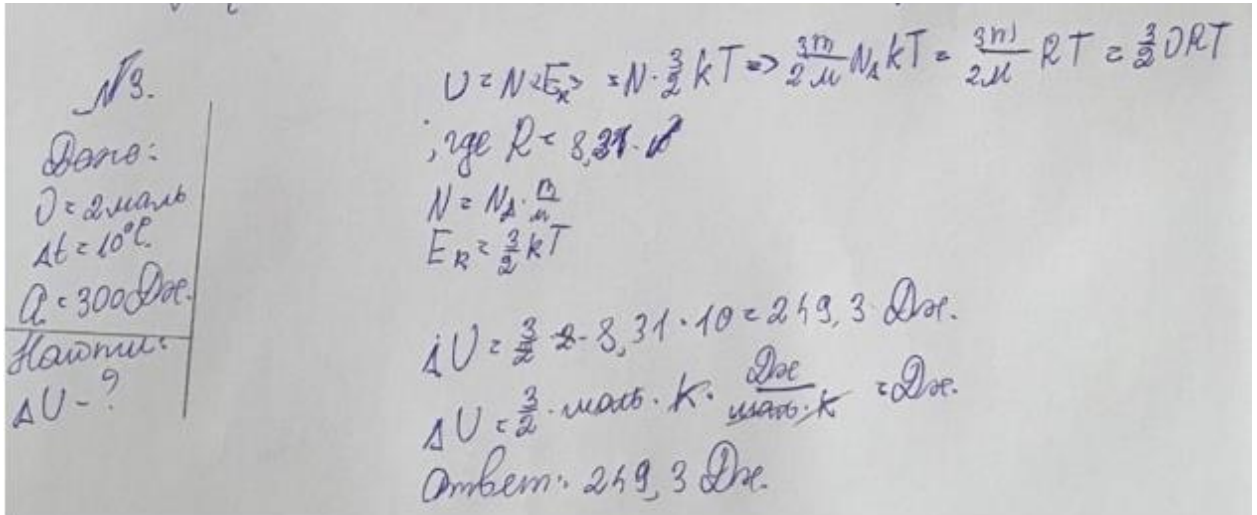 №3.
Дано:
υ = 2 моль
Δt = 10°C.
Q = 300 Дж.
Найти:
ΔU - ?
U = N<Eк> = N · 3/2 kT => 3m/2μ NA kT = 3m/2μ RT = 3/2 υRT
, где R = 8,31 ·
N = NA · m/μ
Eк = 3/2 kT
ΔU = 3/2 · 2 · 8,31 · 10 = 249,3 Дж.
ΔU = 3/2 · моль · К · Дж/моль·К = Дж.
Ответ: 249,3 Дж.